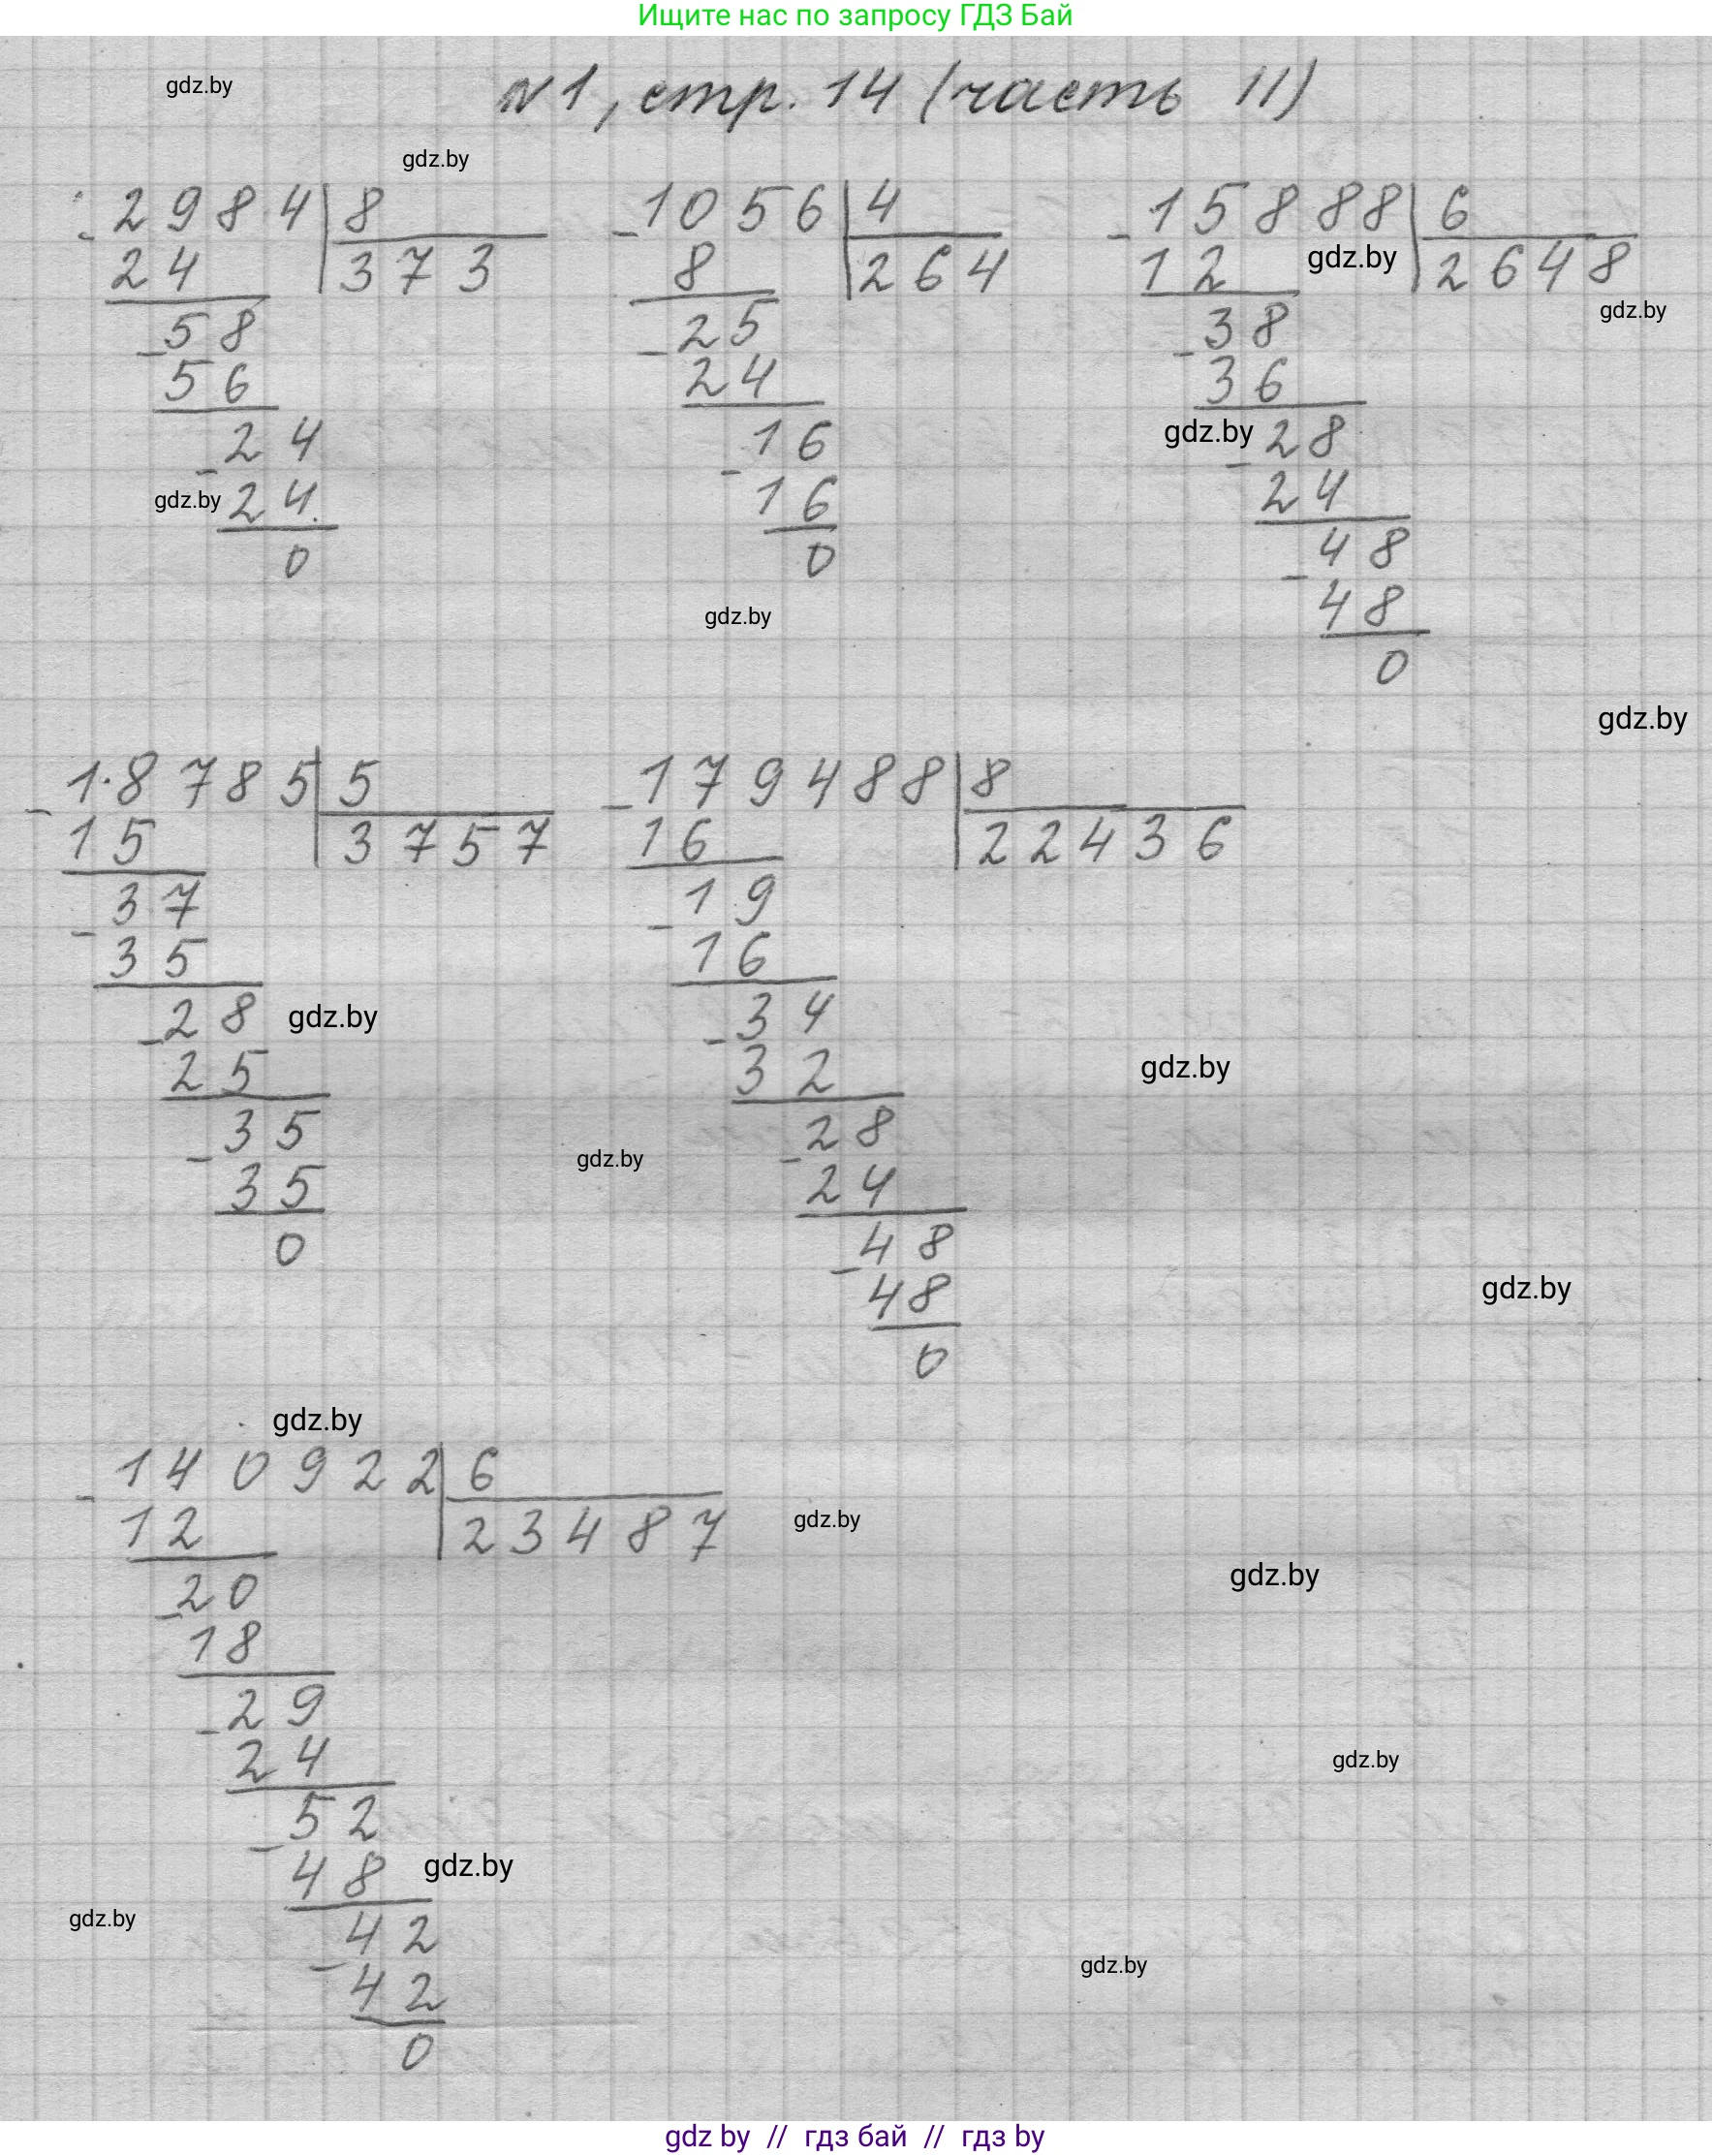 Ищите нас по запросу ГДЗ Бай
№1, стр. 14 (часть II)
gdz.by
gdz.by
- 2984 | 8
24 | 373
- 58
56
- 24
24
0
gdz.by
- 1056 | 4
8 | 264
- 25
24
- 16
16
0
gdz.by
- 15888 | 6
12 | 2648
- 38
36
- 28
24
- 48
48
0
gdz.by
gdz.by
gdz.by
gdz.by
- 18785 | 5
15 | 3757
- 37
35
- 28
25
- 35
35
0
gdz.by
- 179488 | 8
16 | 22436
- 19
16
- 34
32
- 28
24
- 48
48
0
gdz.by
gdz.by
gdz.by
gdz.by
- 140922 | 6
12 | 23487
- 20
18
- 29
24
- 52
48
- 42
42
0
gdz.by
gdz.by
gdz.by
gdz.by
gdz.by
gdz.by
gdz by // гдз бай // гдз by